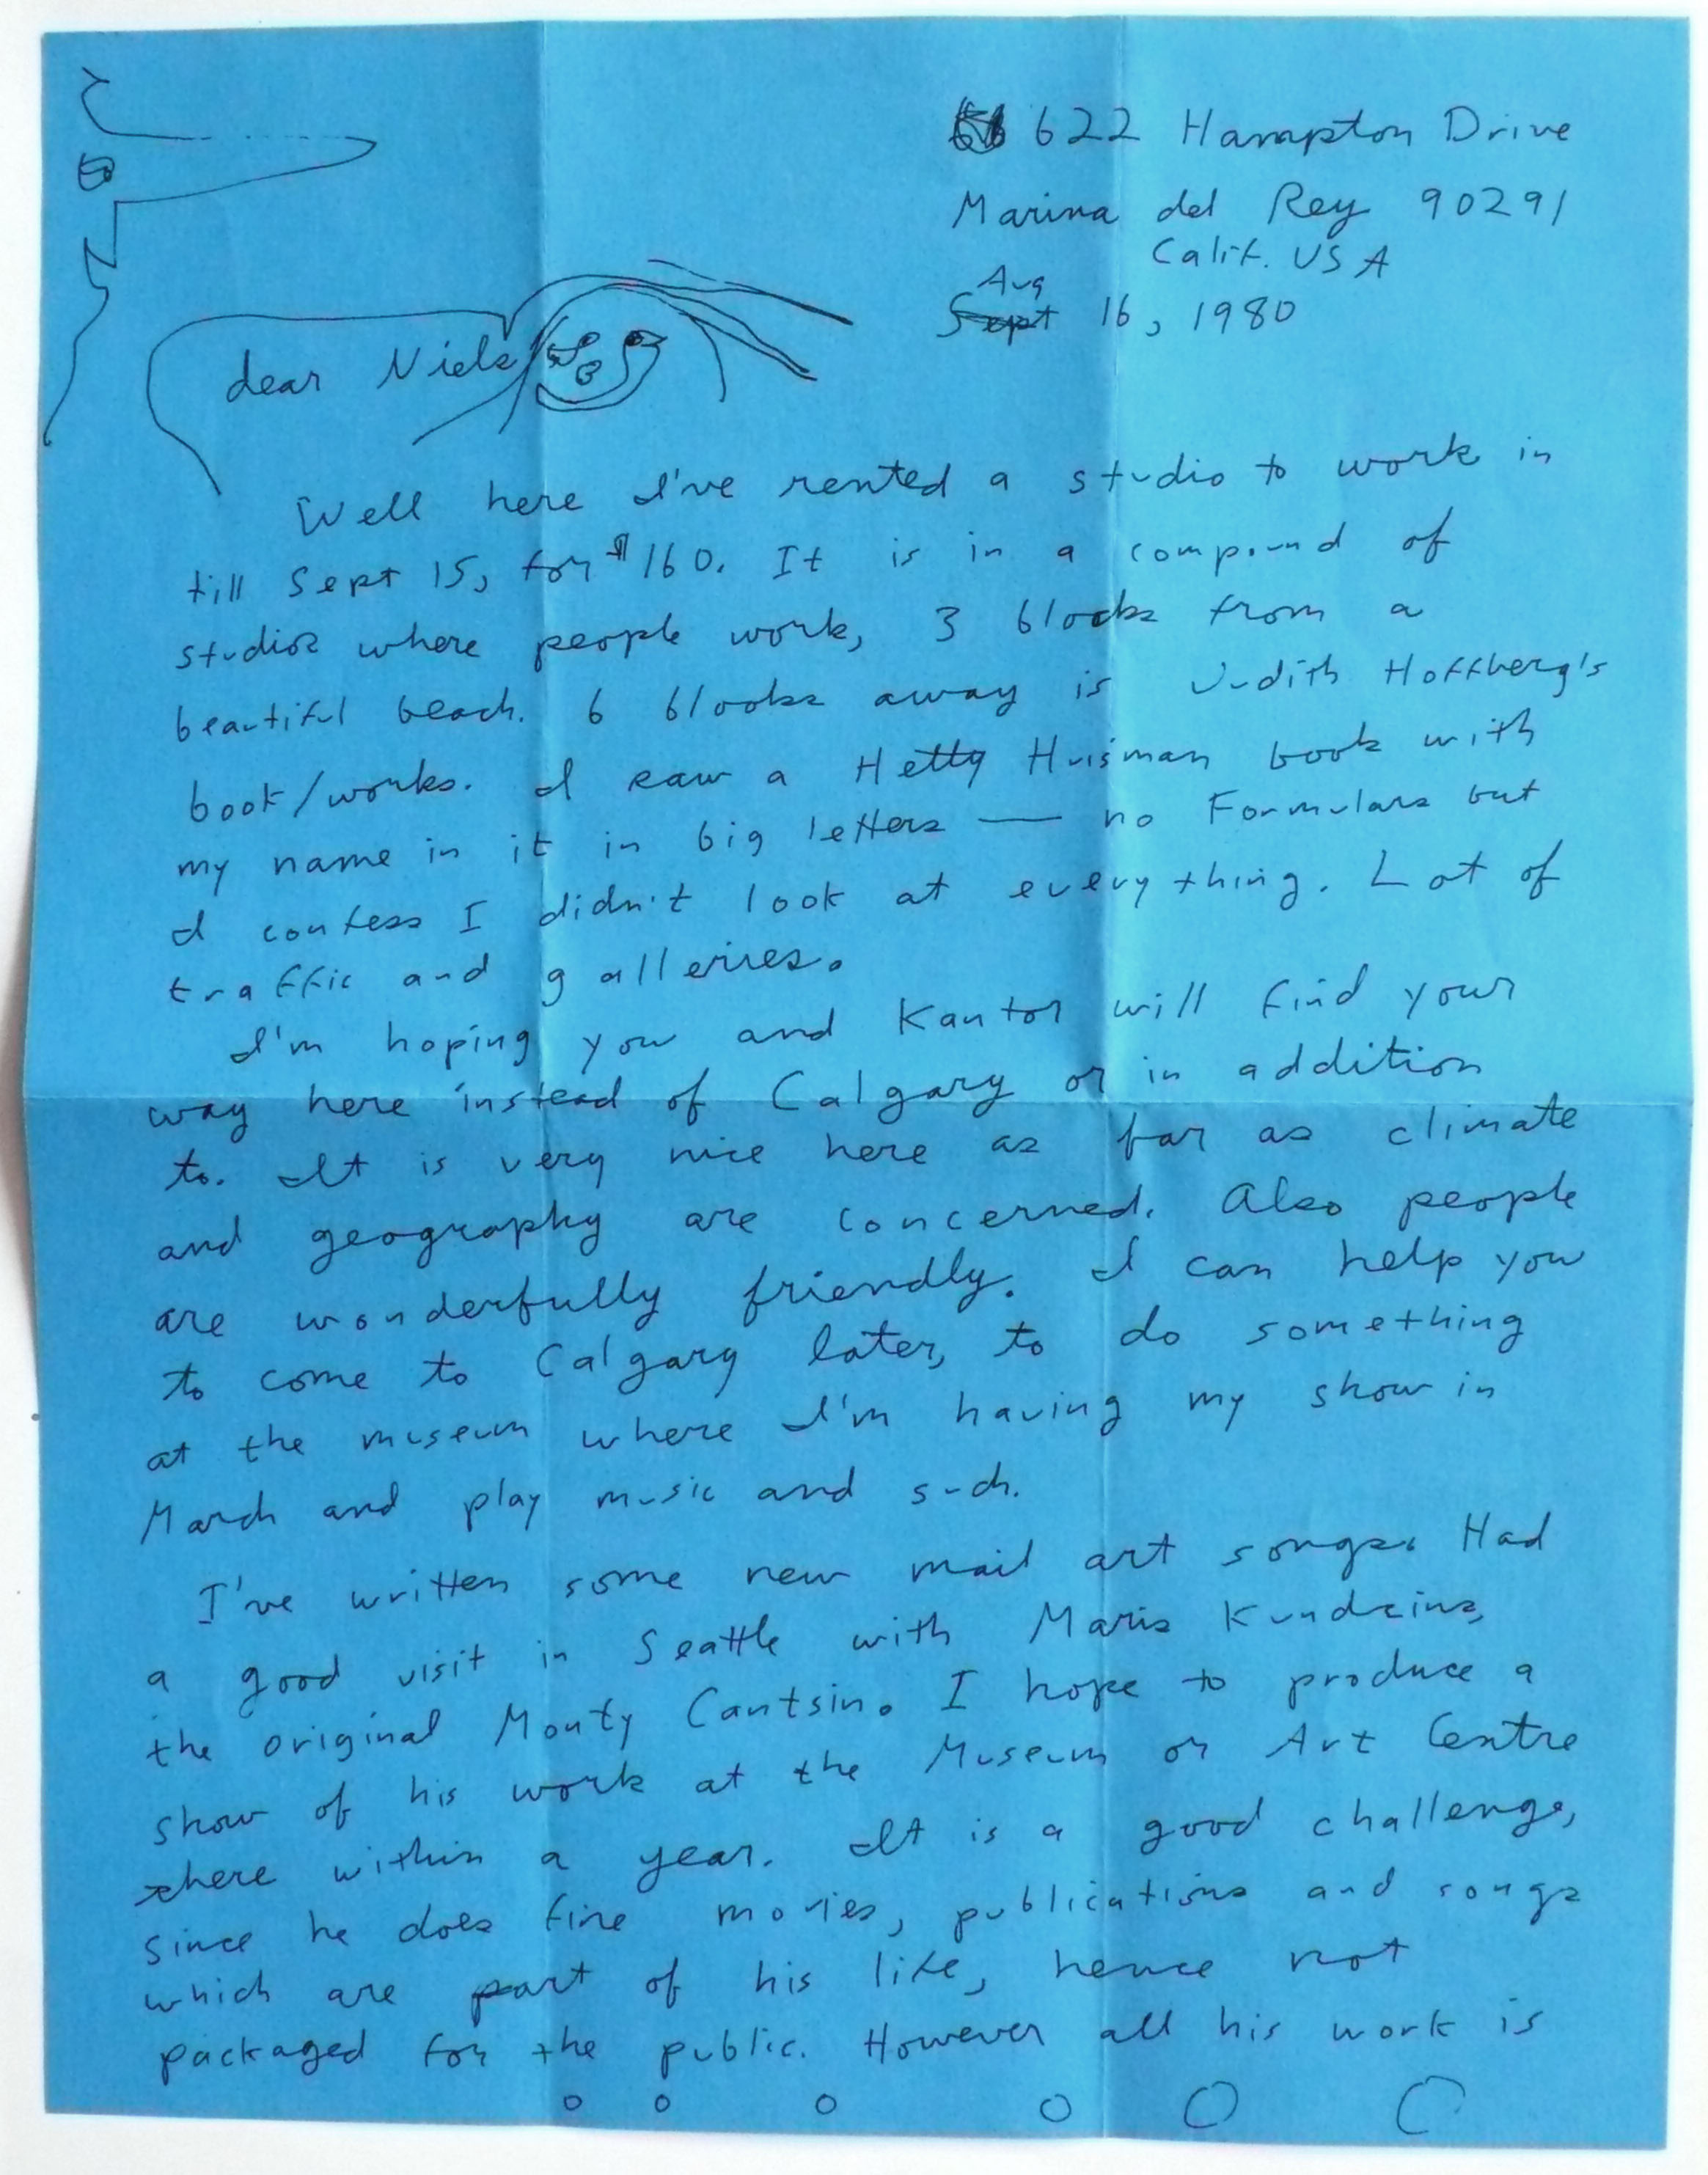 622 Hampton Drive
Marina del Rey 90291
Calif. USA
Aug
Sept 16, 1980
dear Niels
Well here I've rented a studio to work in
till Sept 15, for $160. It is in a compound of
studios where people work, 3 blocks from a
beautiful beach. 6 blocks away is Judith Hoffberg's
book/works. I saw a Hetty Huisman book with
my name in it in big letters — no Formulars but
I confess I didn't look at everything. Lot of
traffic and galleries.
I'm hoping you and Kantor will find your
way here instead of Calgary or in addition
to. It is very nice here as far as climate
and geography are concerned. Also people
are wonderfully friendly. I can help you
to come to Calgary later, to do something
at the museum where I'm having my show in
March and play music and such.
I've written some new mail art songs. Had
a good visit in Seattle with Maris Kundzins,
the original Monty Cantsin. I hope to produce a
show of his work at the Museum or Art Centre
there within a year. It is a good challenge,
since he does fine movies, publications and songs
which are part of his life, hence not
packaged for the public. However all his work is